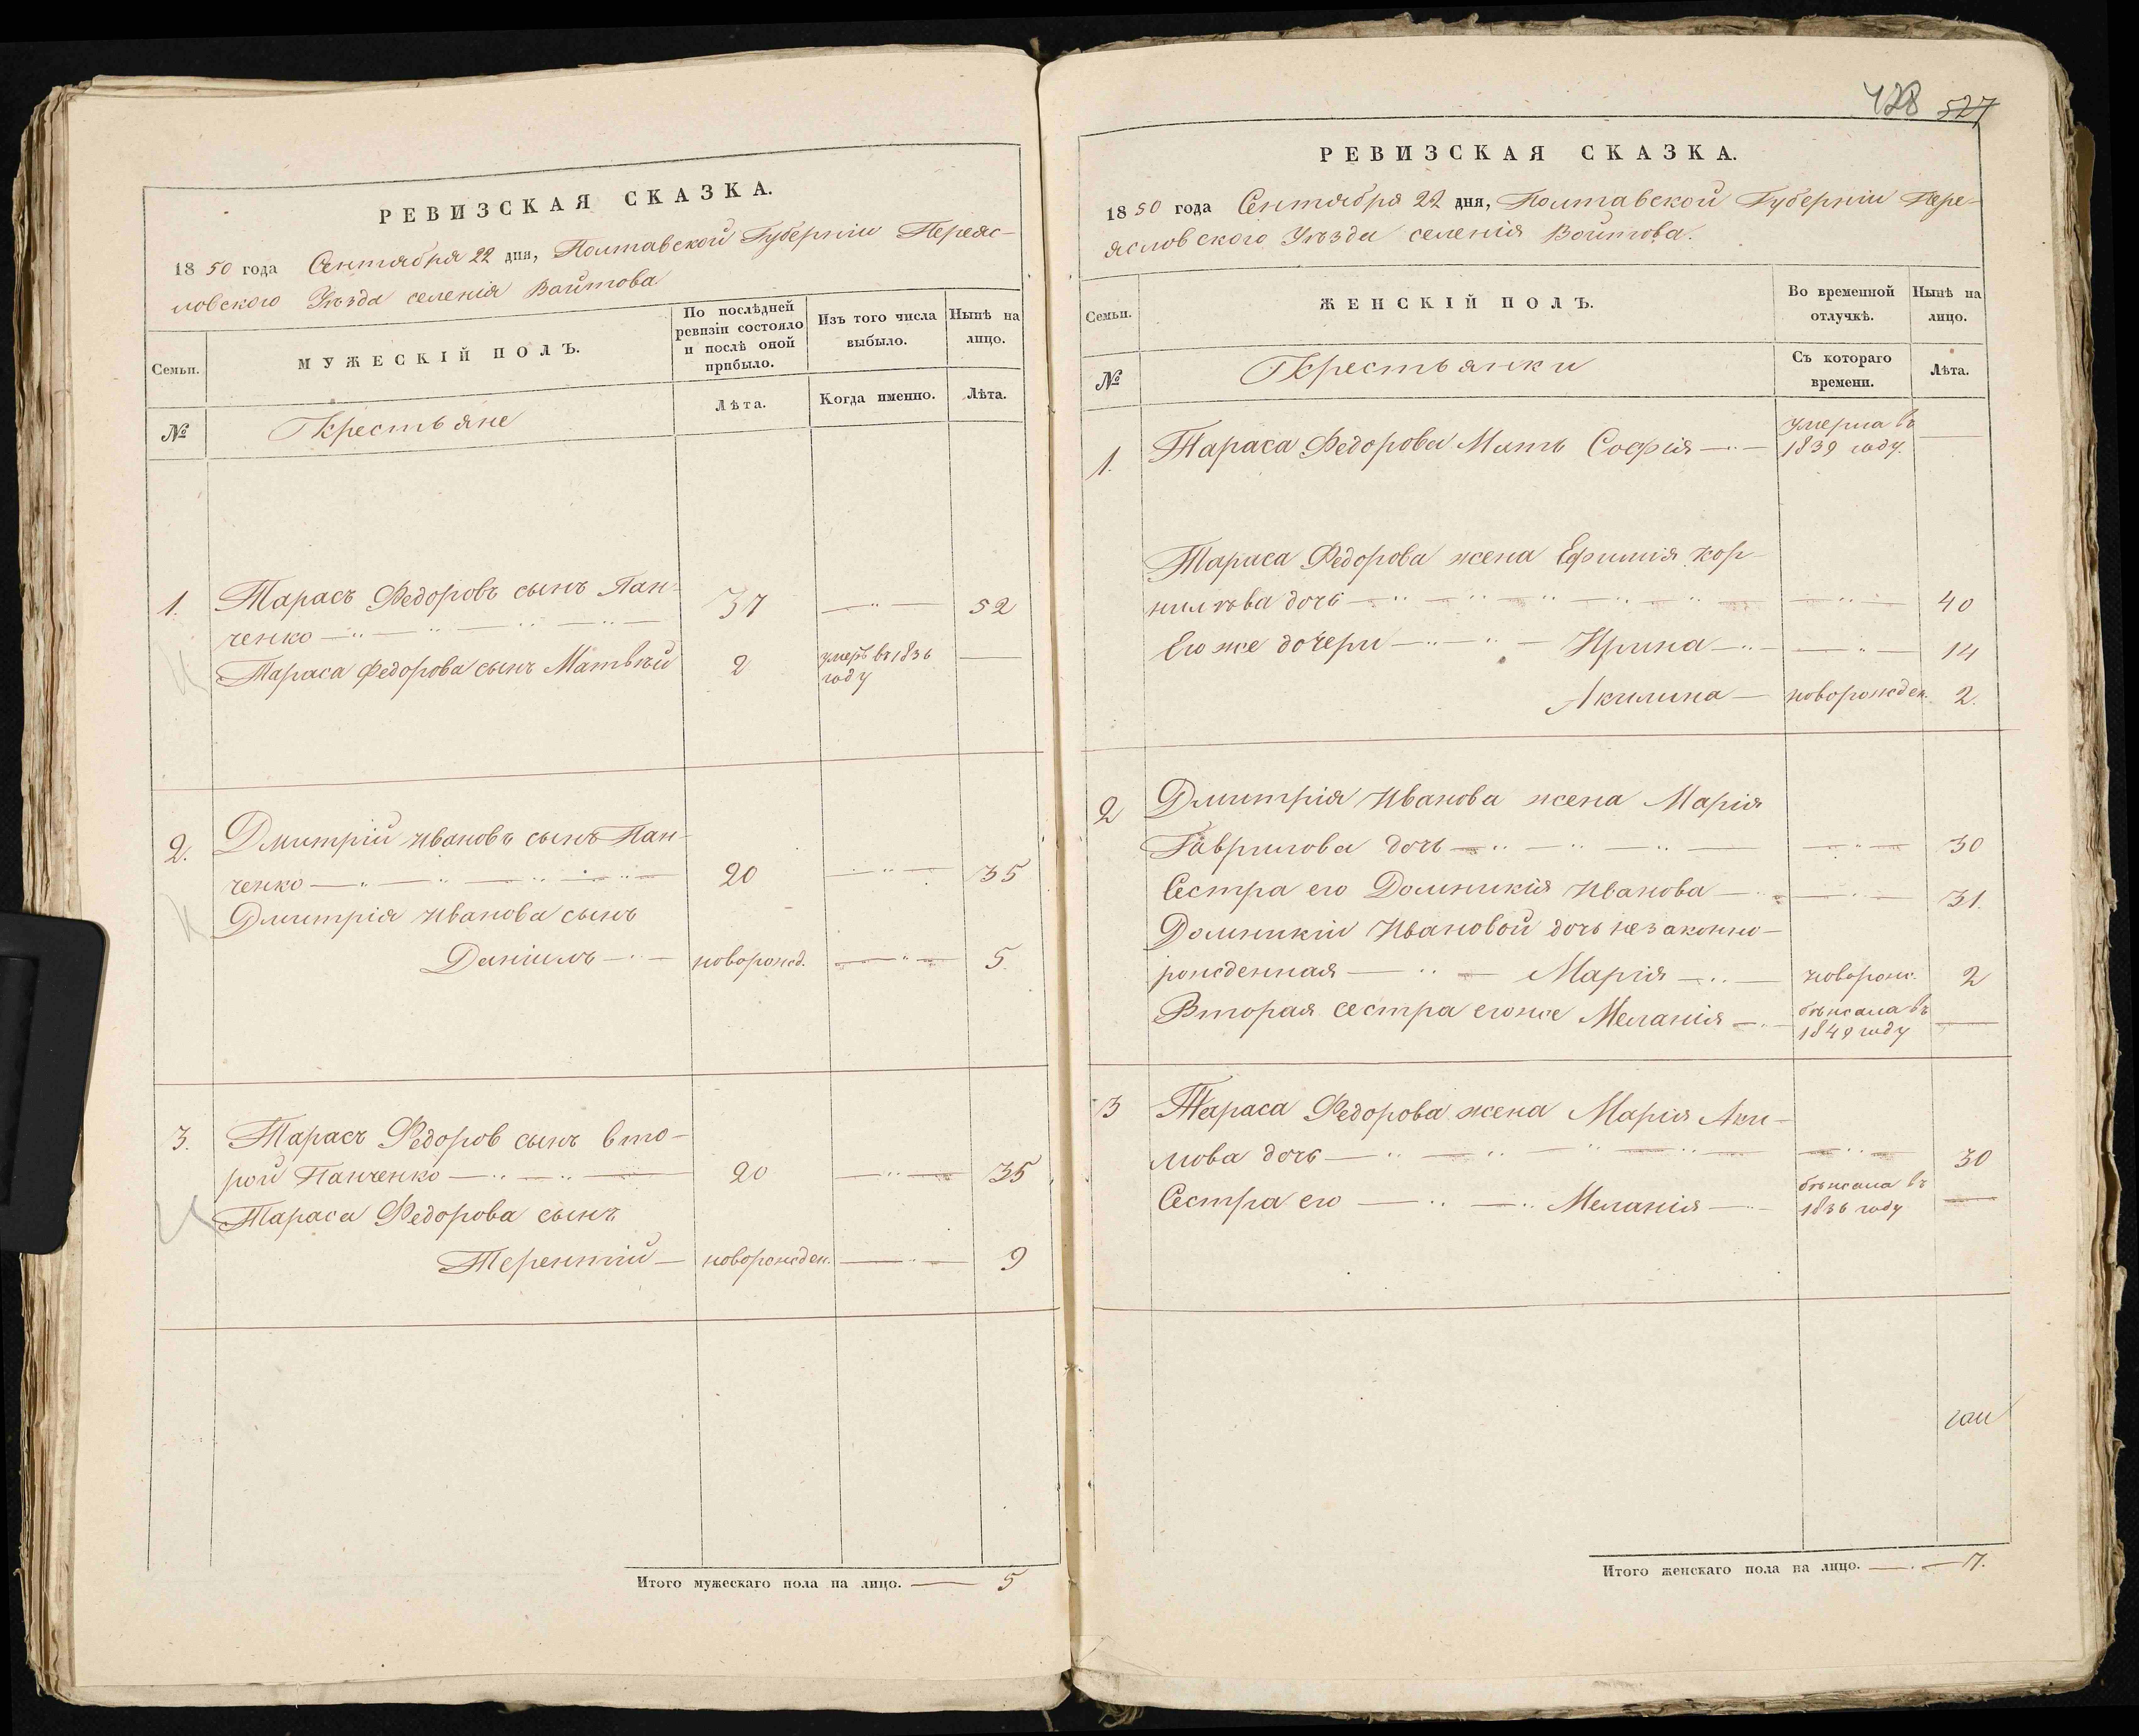 РЕВИЗСКАЯ СКАЗКА.
1850 года Сентября 22 дня, Полтавской Губерніи Переяс-
ловского Уѣзда селенія Войтова
Семьи.
МУЖЕСКІЙ ПОЛЪ.
По послѣдней
ревизіи состояло
и послѣ оной
прибыло.
Изъ того числа
выбыло.
Нынѣ на
лицо.
№
Крестьяне
Лѣта.
Когда именно.
Лѣта.
1. Тарасъ Федоровъ сынъ Пан-
ченко 37 52
Тараса Федорова сынъ Матвѣй 2 умеръ въ 1836
году
2. Дмитрій Ивановъ сынъ Пан-
ченко 20 35
Дмитрія Иванова сынъ
Даніилъ новорожд. 5.
3. Тарасъ Федоров сынъ вто-
рой Панченко 20 35
Тараса Федорова сынъ
Терентій новорожден. 9
Итого мужескаго пола на лицо. 5
428 527
РЕВИЗСКАЯ СКАЗКА.
1850 года Сентября 22 дня, Полтавской Губерніи Пере-
ясловского Уѣзда селенія Войтова.
Семьи.
ЖЕНСКІЙ ПОЛЪ.
Во временной
отлучкѣ.
Нынѣ на
лицо.
№
Крестьянки
Съ котораго
времени.
Лѣта.
1. Тараса Федорова Мать Софія умерла въ
1839 году.
Тараса Федорова жена Ефимія Кор-
нилѣва дочь 40
Его же дочери Ирина 14
Акилина новорожден. 2.
2 Дмитрія Иванова жена Марія
Гаврилова дочь 30
Сестра его Домникія Иванова 31.
Домникіи Ивановой дочь незаконно-
рожденная Марія новорож. 2
Вторая сестра егоже Меланія бѣжала въ
1849 году
3 Тараса Федорова жена Марія Аки-
мова дочь 30
Сестра его Меланія бѣжала въ
1836 году
Итого женскаго пола на лицо. 7.